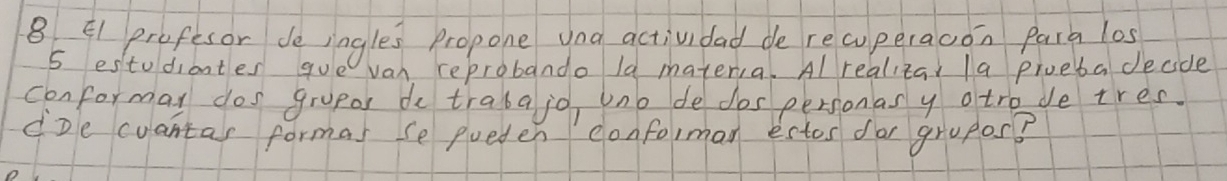 8 El profesor de ingles propone una actividad de recuperacón para los
5 estudiantes que van reprobando la materia. Al realizar la prueba decide
conformar dos grupos de trabajo, uno de dos personas y otro de tres.
¿De cuántas formas se pueden conformar estos dos grupos?